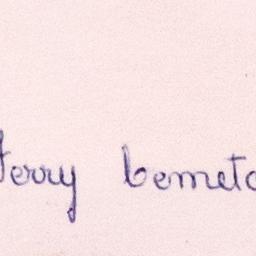 ferry bemeto